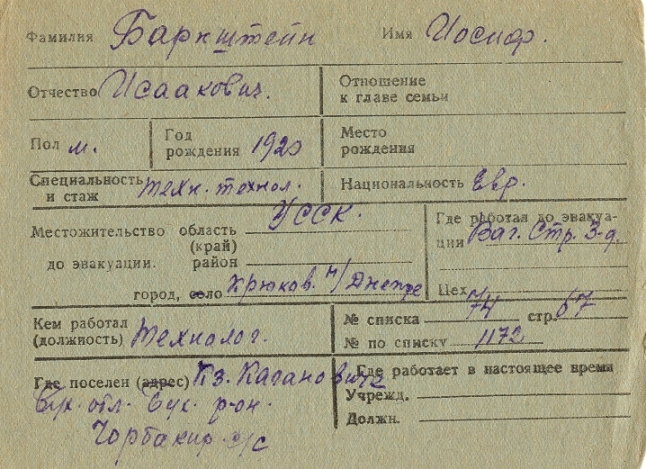 Фамилия Баркштейн Имя Иосиф.
Отчество Исаакович. Отношение к главе семьи
Пол м. Год рождения 1920 Место рождения
Специальность и стаж техн. технол. Национальность Евр.
Местожительство до эвакуации. область (край) УССК.
район
город, село Крюков. н/Днепре
Где работал до эвакуации Ваг. Стр. З-д.
Цех
Кем работал (должность) Технолог.
№ списка 74 стр. 67
№ по списку 1172
Где поселен (адрес) Кз. Кагановича
Бух. обл. Бух. р-он.
Чорбакир с/с
Где работает в настоящее время
Учрежд.
Должн.